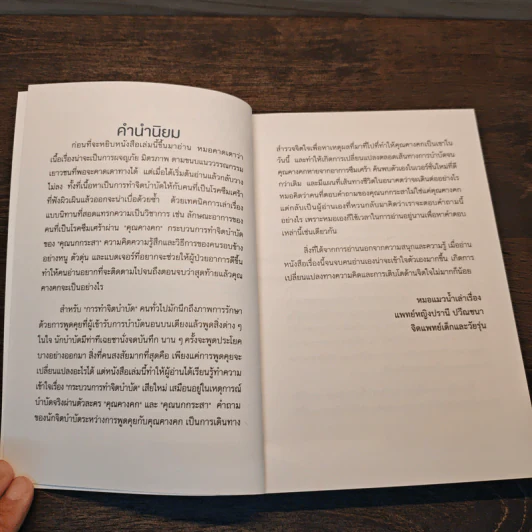 คำนำนิยม
ก่อนที่จะหยิบหนังสือเล่มนี้ขึ้นมาอ่าน หมอคาดเดาว่า
เนื้อเรื่องน่าจะเป็นการผจญภัย มิตรภาพ ตามขนบแนววรรณกรรม
เยาวชนที่พอจะคาดเดาทางได้ แต่เมื่อได้เริ่มต้นอ่านแล้วกลับวาง
ไม่ลง ทั้งที่เนื้อหาเป็นการทำจิตบำบัดให้กับคนที่เป็นโรคซึมเศร้า
ที่ฟังผิวเผินแล้วออกจะน่าเบื่อด้วยซ้ำ ด้วยเทคนิคการเล่าเรื่อง
แบบนิทานที่สอดแทรกความเป็นวิชาการ เช่น ลักษณะอาการของ
คนที่เป็นโรคซึมเศร้าผ่าน 'คุณคางคก' กระบวนการทำจิตบำบัด
ของ 'คุณนกกระสา' ความคิดความรู้สึกและวิธีการของคนรอบข้าง
อย่างหนู ตัวตุ่น และแบดเจอร์ที่อยากจะช่วยให้ผู้ป่วยอาการดีขึ้น
ทำให้คนอ่านอยากที่จะติดตามไปจนถึงตอนจบว่าสุดท้ายแล้วคุณ
คางคกจะเป็นอย่างไร
สำหรับ 'การทำจิตบำบัด' คนทั่วไปมักนึกถึงภาพการรักษา
ด้วยการพูดคุยที่ผู้เข้ารับการบำบัดนอนบนเตียงแล้วพูดสิ่งต่าง ๆ
ในใจ นักบำบัดมีท่าทีเฉยชานั่งจดบันทึก นาน ๆ ครั้งจะพูดประโยค
บางอย่างออกมา สิ่งที่คนสงสัยมากที่สุดคือ เพียงแค่การพูดคุยจะ
เปลี่ยนแปลงอะไรได้ แต่หนังสือเล่มนี้ทำให้ผู้อ่านได้เรียนรู้ทำความ
เข้าใจเรื่อง 'กระบวนการทำจิตบำบัด' เสียใหม่ เสมือนอยู่ในเหตุการณ์
บำบัดจริงผ่านตัวละคร 'คุณคางคก' และ 'คุณนกกระสา' คำถาม
ของนักจิตบำบัดระหว่างการพูดคุยกับคุณคางคก เป็นการเดินทาง
สำรวจจิตใจเพื่อหาเหตุผลที่มาที่ไปที่ทำให้คุณคางคกเป็นเขาใน
วันนี้ และทำให้เกิดการเปลี่ยนแปลงตลอดเส้นทางการบำบัดจน
คุณคางคกหายจากอาการซึมเศร้า ค้นพบตัวเองในเวอร์ชันใหม่ที่ดี
กว่าเดิม และมีแผนที่เส้นทางชีวิตในอนาคตว่าจะเดินต่ออย่างไร
หมอคิดว่าคนที่ตอบคำถามของคุณนกกระสาไม่ใช่แค่คุณคางคก
แต่กลับเป็นผู้อ่านเองที่หวนกลับมาคิดว่าเราจะตอบคำถามนี้
อย่างไร เพราะหมอเองก็ใช้เวลาในการอ่านอยู่นานเพื่อหาคำตอบ
เหล่านี้เช่นเดียวกัน
สิ่งที่ได้จากการอ่านนอกจากความสนุกและความรู้ เมื่ออ่าน
หนังสือเรื่องนี้จนจบคนอ่านเองน่าจะเข้าใจตัวเองมากขึ้น เกิดการ
เปลี่ยนแปลงทางความคิดและการเติบโตด้านจิตใจไม่มากก็น้อย
หมอแมวน้ำเล่าเรื่อง
แพทย์หญิงปรานี ปวีณชนา
จิตแพทย์เด็กและวัยรุ่น